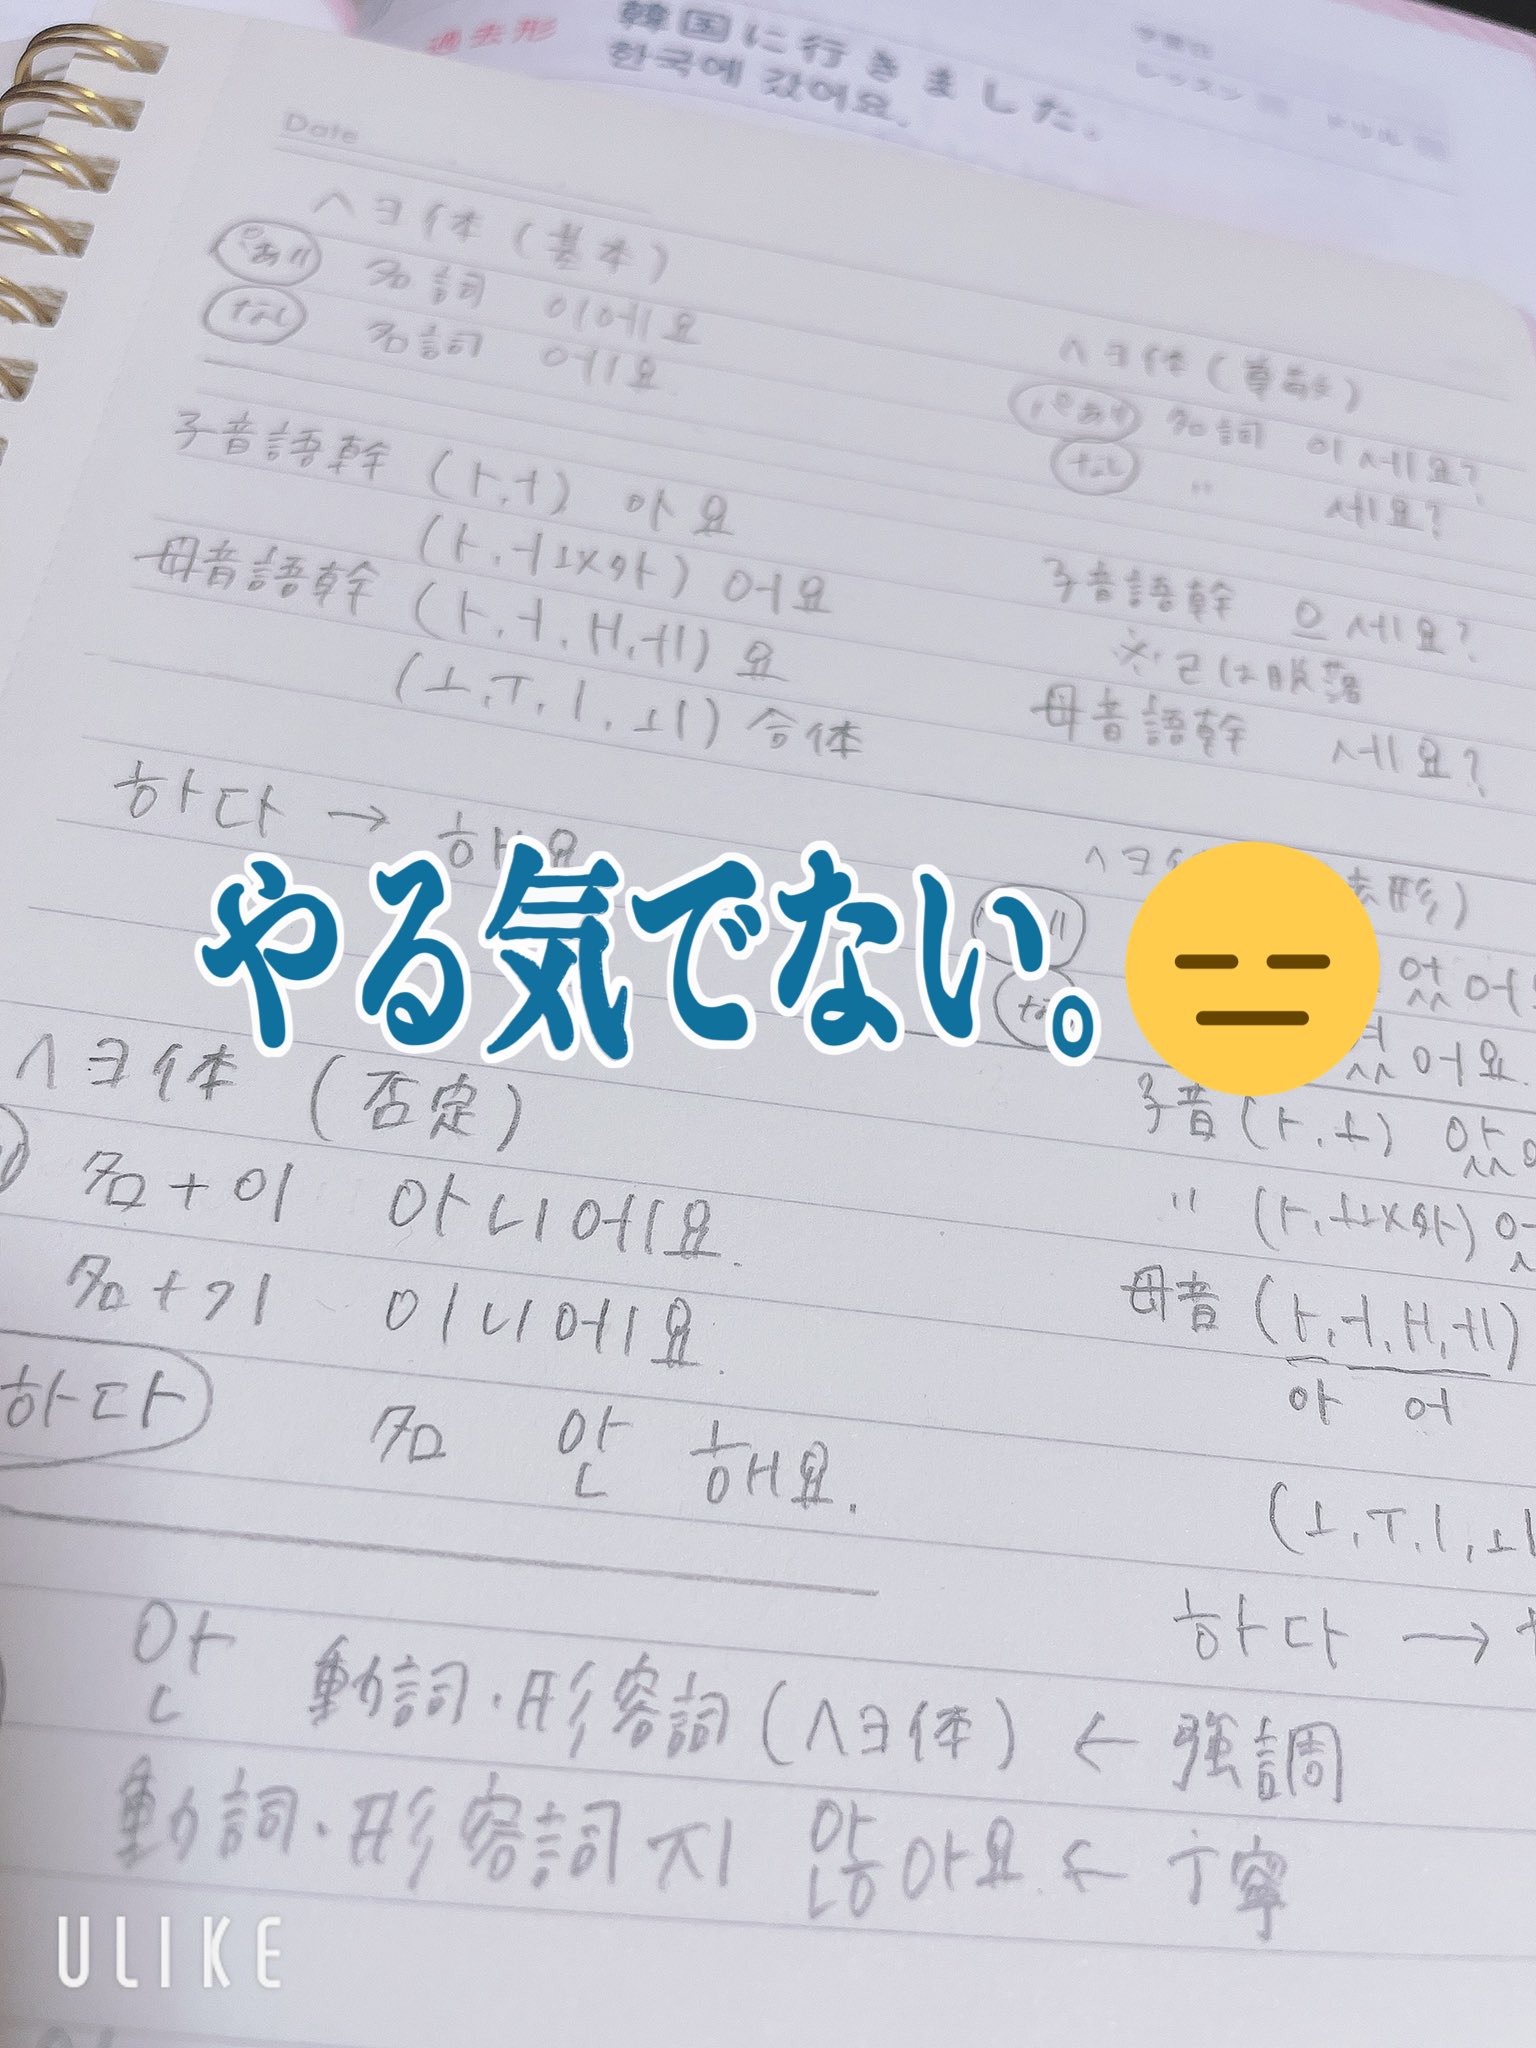 過去形
韓国に行きました。
한국에 갔어요.
レッスン
ドリル
Date
ヘヨ体(基本)
あり 名詞 이에요
なし 名詞 에요
子音語幹 (ㅏ,ㅓ) 아요
(ㅏ,ㅓㅗ以外) 어요
母音語幹 (ㅏ,ㅓ,ㅐ,ㅔ) 요
(ㅗ,ㅜ,ㅣ,ㅚ) 合体
하다 → 해요
ヘヨ体(尊敬)
あり 名詞 이세요?
なし 〃 세요?
子音語幹 으세요?
※ㄹは脱落
母音語幹 세요?
やる気でない。😑
ヘヨ体(否定)
名+이 아니에요.
名+기 이니에요.
하다 名 안 해요.
안 動詞・形容詞(ヘヨ体) ← 強調
動詞・形容詞지 않아요. ← 丁寧
形)
어요.
子音(ㅏ,ㅗ) 았
〃 (ㅏ,ㅗ以外)
母音(ㅏ,ㅓ,ㅐ,ㅔ)
아 어
(ㅗ,ㅜ,ㅣ,ㅚ
하다 →
ULIKE